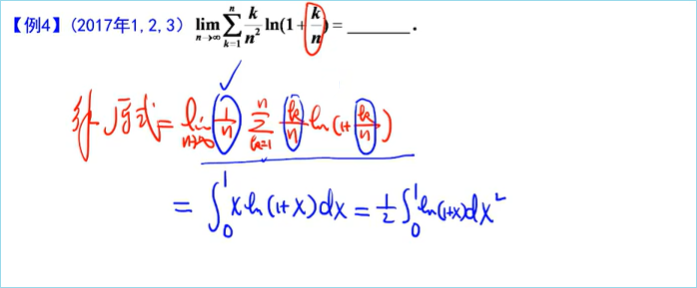 【例4】(2017年1,2,3) lim_{n→∞} ∑_{k=1}^{n} k/n² ln(1+k/n) = ______.
解 原式 = lim_{n→∞} 1/n ∑_{k=1}^{n} k/n ln(1+k/n)
= ∫₀¹ x ln(1+x)dx = 1/2 ∫₀¹ ln(1+x)dx²